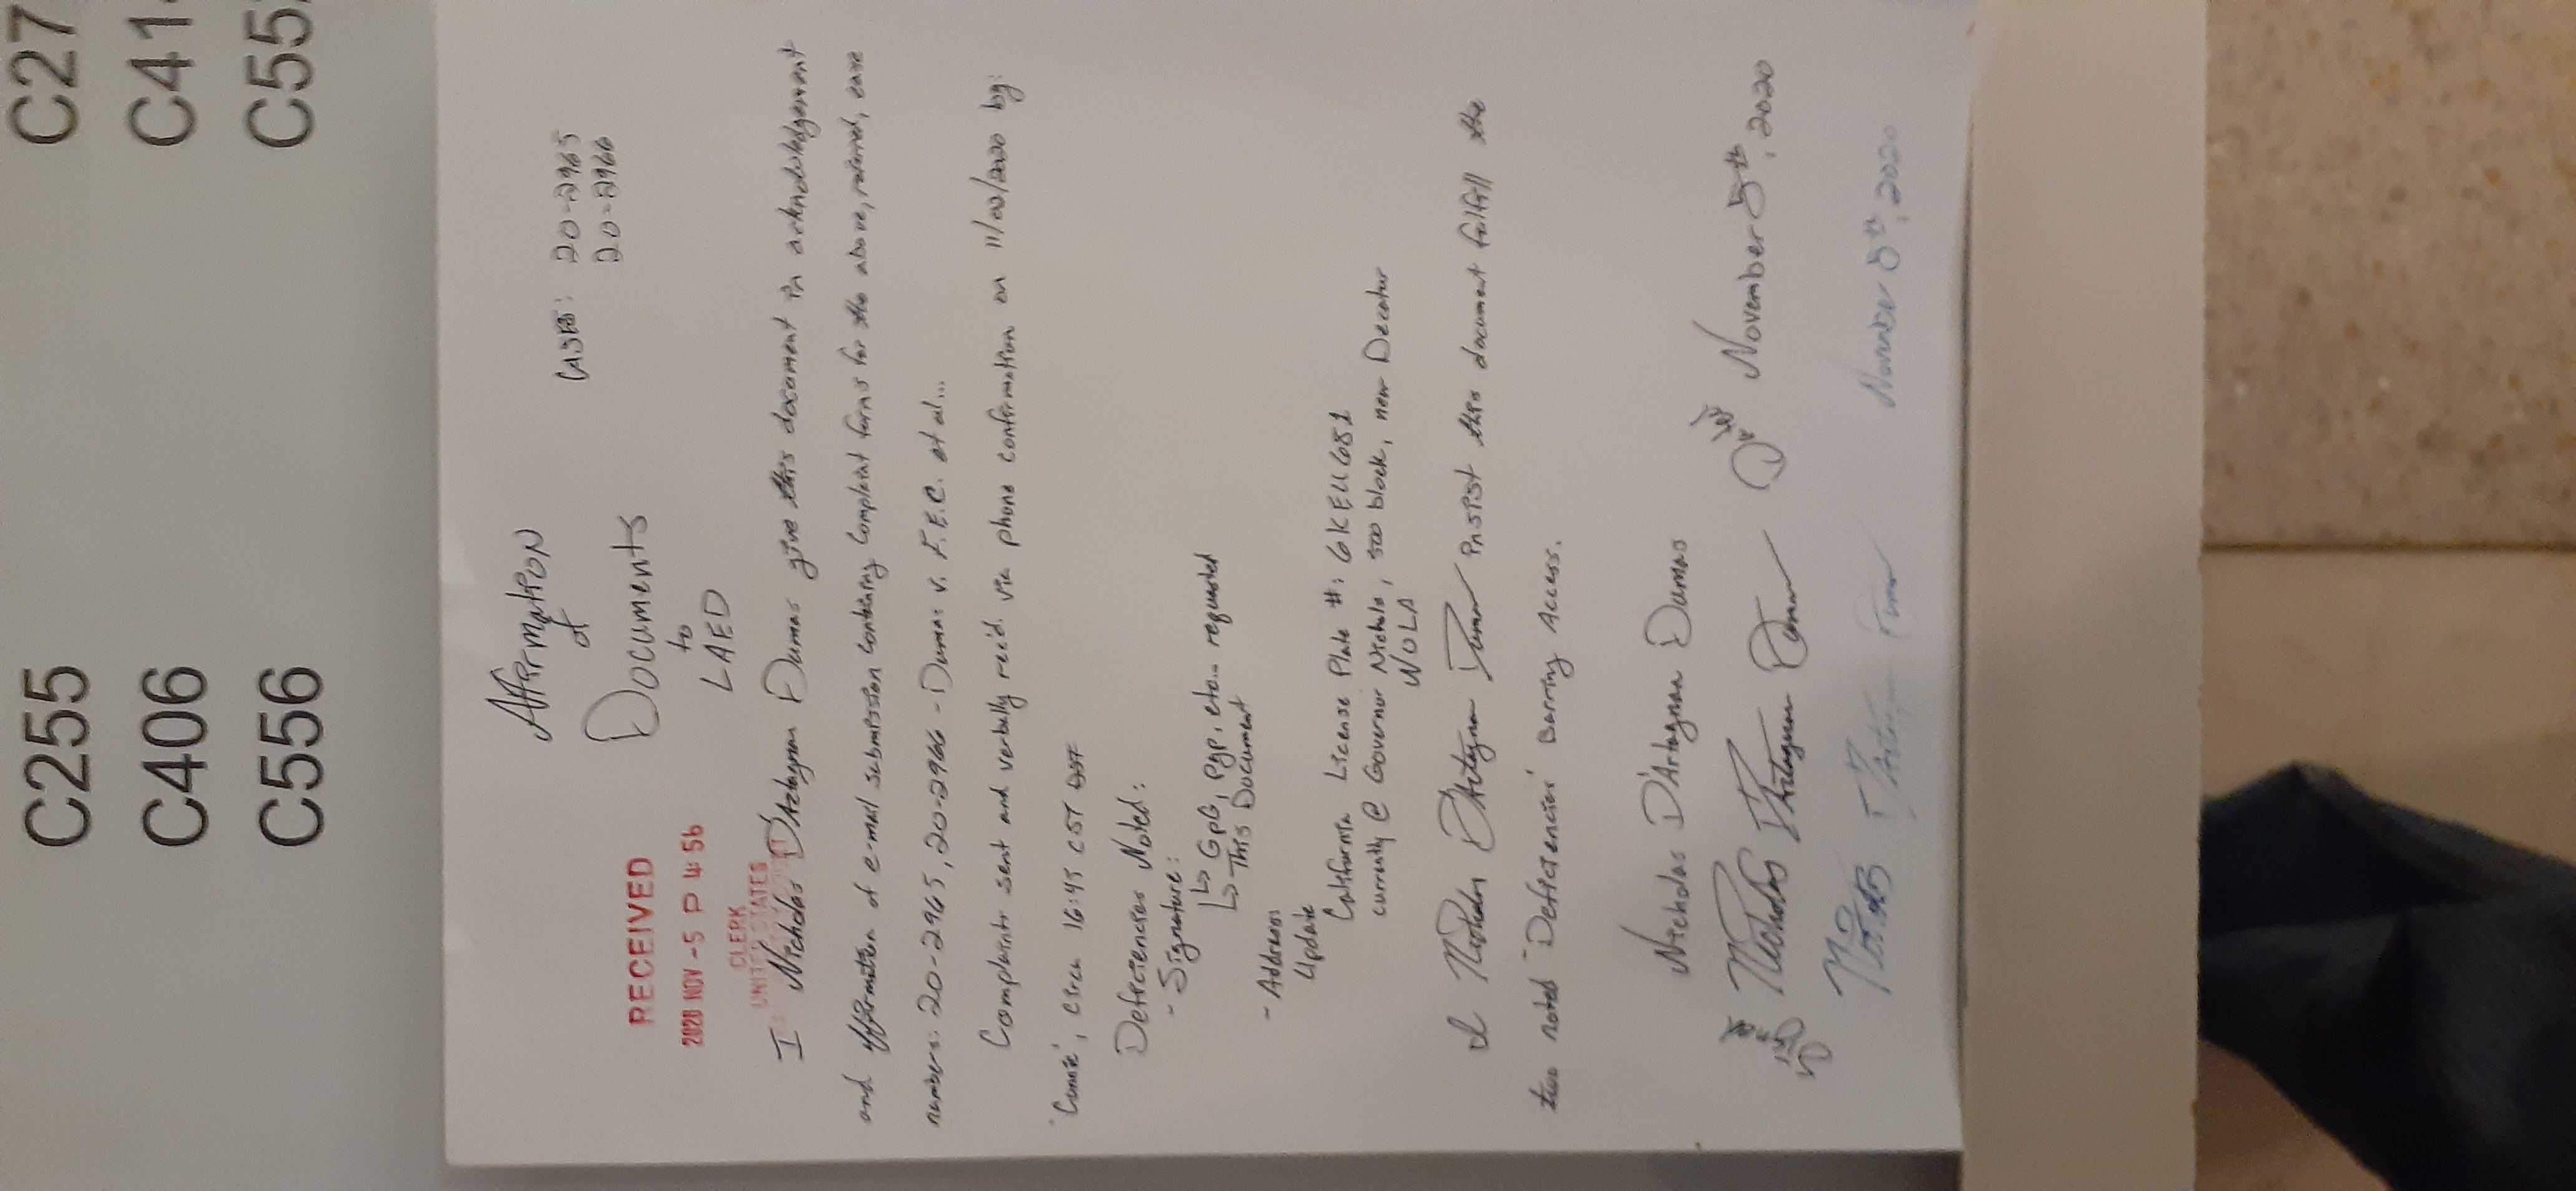 C255 C27
C406 C41
C556 C55
Affirmation
of
Documents
to
LAED
CASES: 20-2965
20-2966
RECEIVED
2020 NOV -5 P 4:56
CLERK
UNITED STATES
I Nicholas D'Artagnan Dumas give this document in acknowledgement
and affirmation of e-mail submission containing Complaint forms for the above, referred, case
numbers: 20-2965, 20-2966 - Dumas v. F.E.C. et al...
Complaints sent and verbally rec'd. via phone confirmation on 11/02/2020 by:
"Connie", Circa 16:45 CST
Deficiencies Noted:
- Signature:
↳ GpG, pgp, etc... requested
↳ This Document
- Address:
Update
California License Plate #: 6KEU681
currently @ Governor Nichols, 500 block, near Decatur
NOLA
I Nicholas D'Artagnan Dumas insist this document fulfill the
two noted "Deficiencies" Barring Access.
Nicholas D'Artagnan Dumas
Signed Nicholas D'Artagnan Dumas Dated November 5th, 2020
Nicholas D'Artagnan Dumas November 5th, 2020